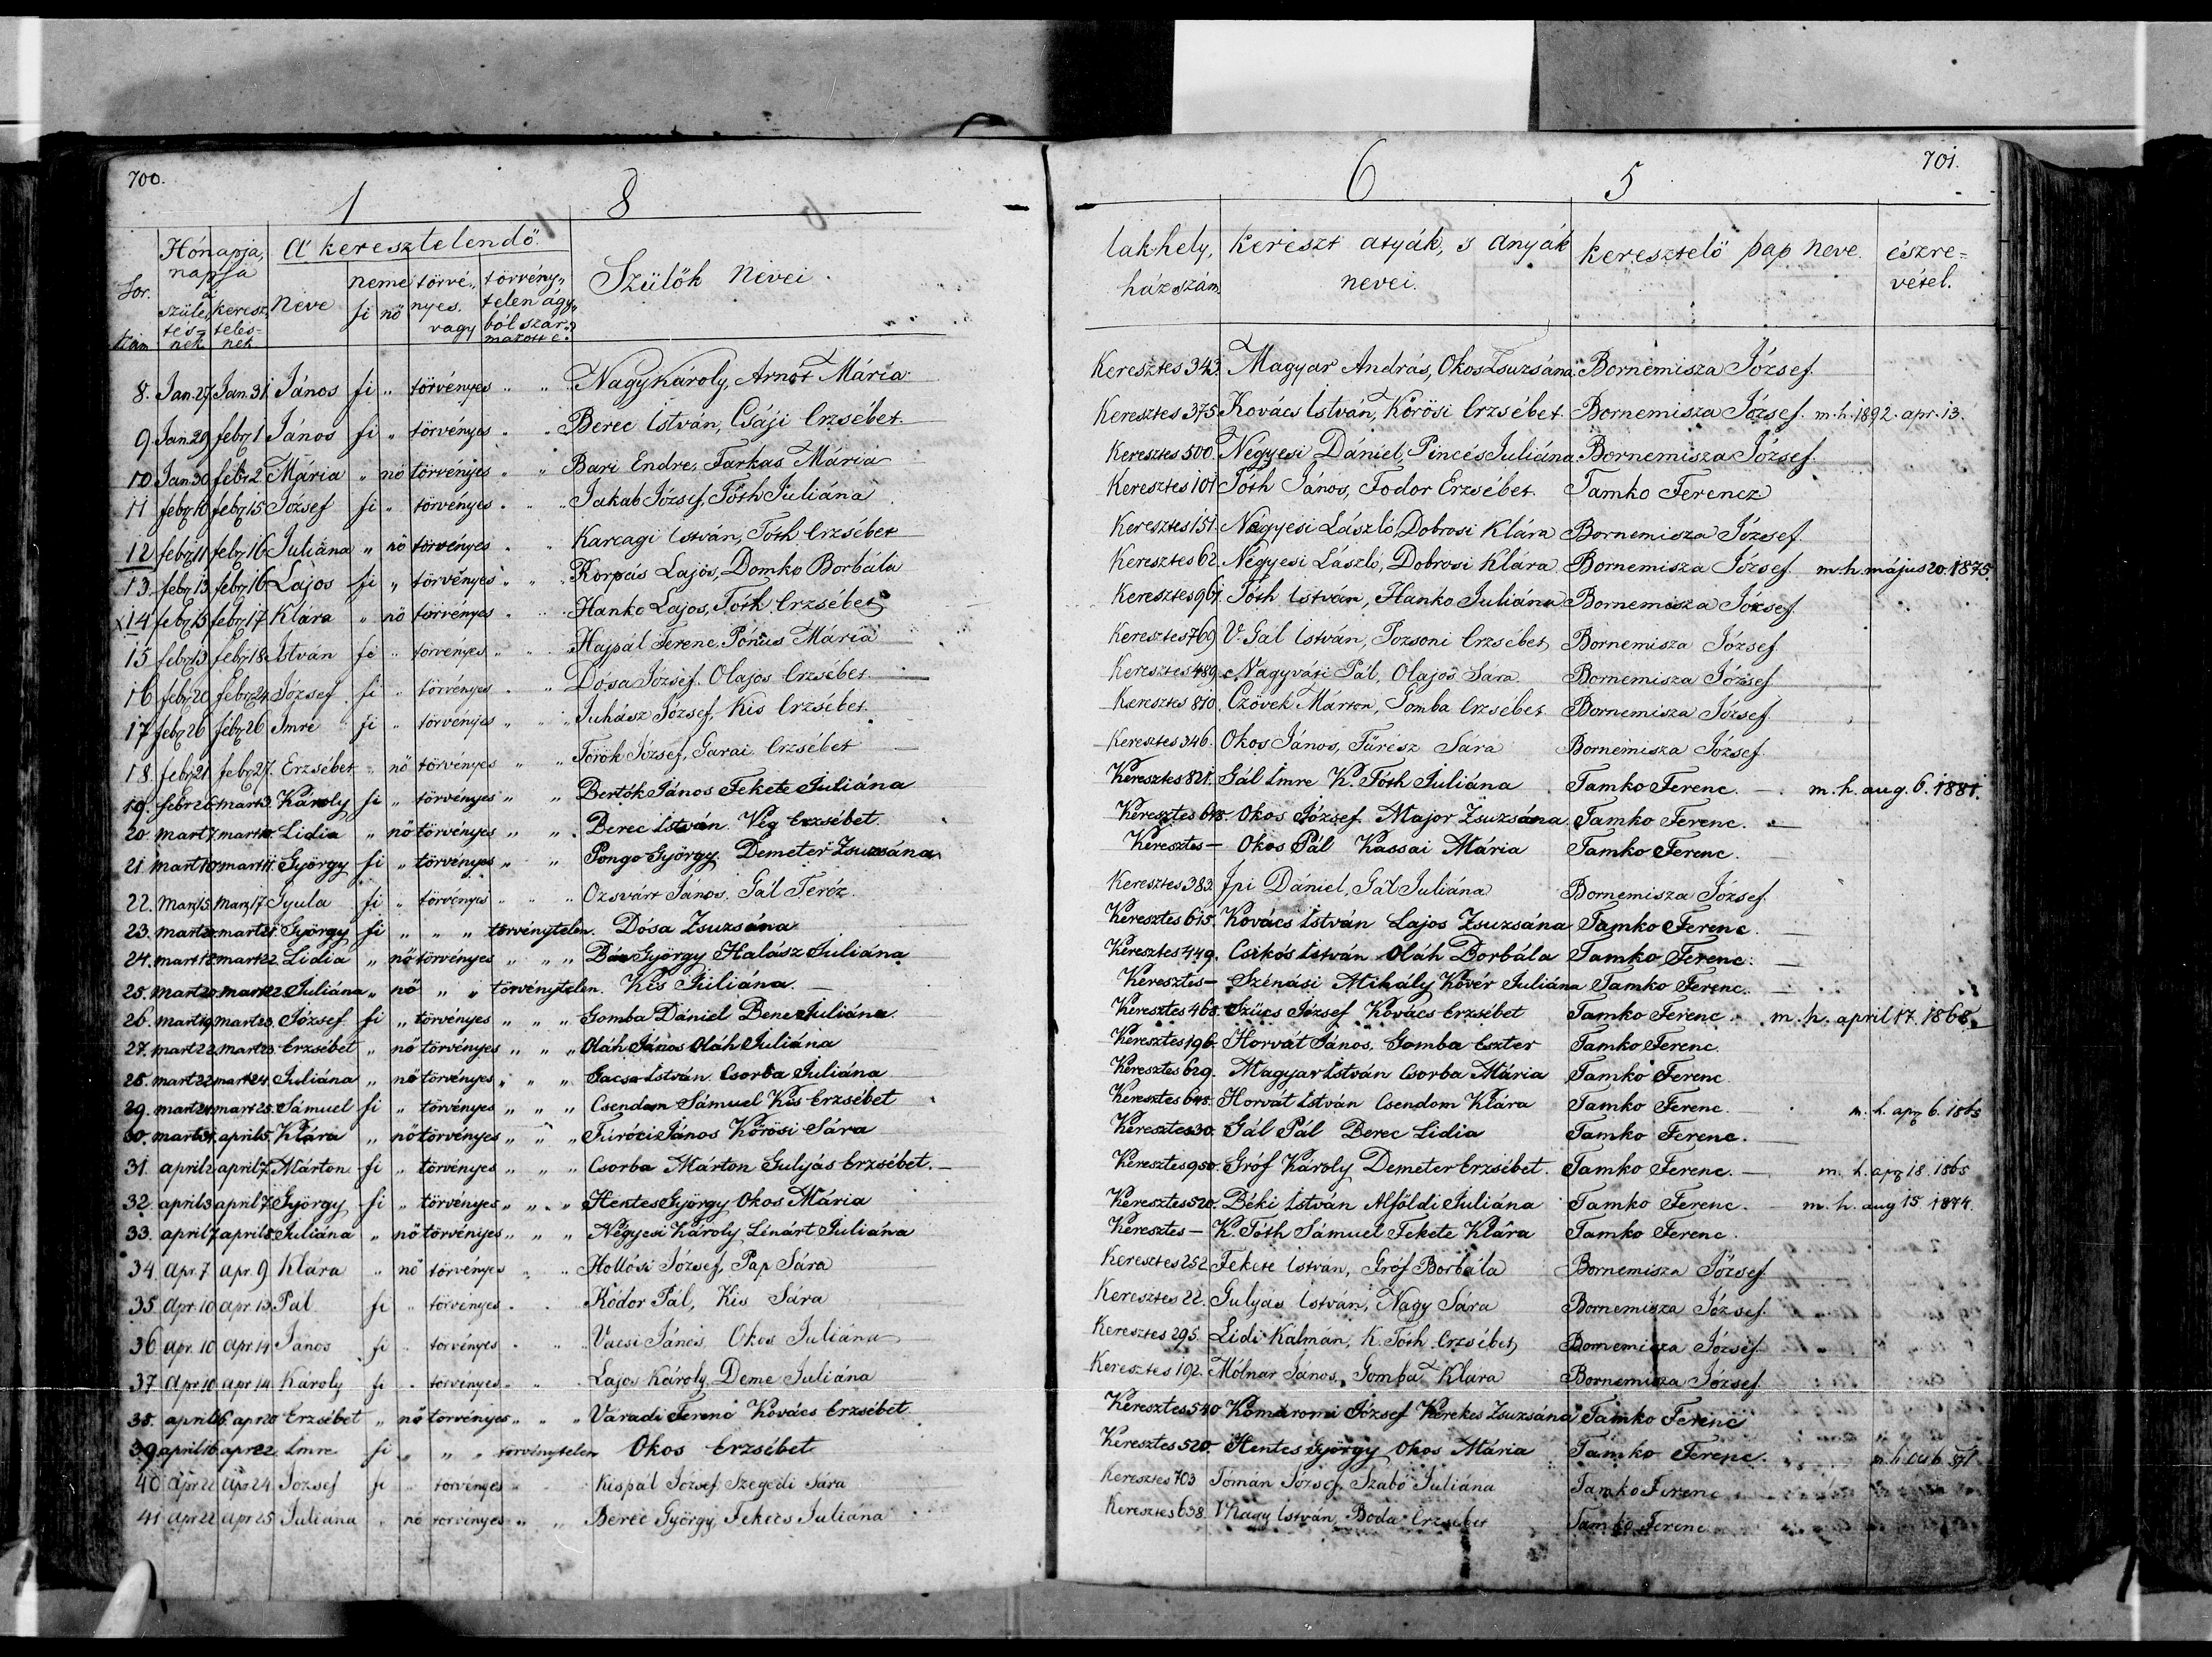 700.
1 8
Hónapja, napja
A' keresztelendő
Sor. szám
a szüle,tés=nek
keresz,telés=nek
neve
neme
fi nő
törvé,,nyes. vagy
törvény,,telen ágy,,ból szár,,mazott é.
Szülők nevei.
8. Jan. 27 Jan. 31 János fi „ törvényes „ „ Nagy Károly, Arnót Mária
9 Jan. 29 febr. 1 János fi „ törvényes „ „ Berec István, Csáji Erzsébet.
10 Jan. 30 febr. 2 Mária „ nő törvényes „ „ Bari Endre, Farkas Mária
11 febr. 10 febr. 15 József fi „ törvényes „ „ Jakab József, Tóth Juliána
12 febr. 11 febr. 16 Juliána „ nő törvényes „ „ Karcagi István, Tóth Erzsébet
13. febr. 13 febr. 16 Lajos fi „ törvényes „ „ Korpás Lajos, Domko Borbála
x14 febr. 15 febr. 17 Klára „ nő törvényes „ „ Hanko Lajos, Tóth Erzsébet
15 febr. 13 febr. 18 István fi „ törvényes „ „ Hajpál Ferenc, Pónus Mária
16 febr. 20 febr. 24 József fi „ törvényes „ „ Dósa József. Olajos Erzsébet.
17 febr. 26 febr. 26 Imre fi „ törvényes „ „ Juhász József, Kis Erzsébet.
18. febr. 21 febr. 27. Erzsébet „ nő törvényes „ „ Török József, Garai Erzsébet
19. febr. 26 mart. 3. Károly fi „ törvényes „ „ Bertók János Fekete Juliána
20. mart. 7 mart. Lidia „ nő törvényes „ „ Berec István. Vég Erzsébet.
21. mart. 10 mart. 11. György fi „ törvényes „ „ Pongo György Demeter Zsuzsána
22. Marz. 15. Marz. 17 Gyula fi „ törvényes „ „ Ozsvárt János. Gál Teréz
23. mart. mart. 21. György fi „ „ „ törvénytelen. Dósa Zsuzsána
24. mart. 18 mart. 22. Lidia „ nő törvényes „ „ „ Bán György Halász Juliána
25. mart. 20 mart. 22. Juliána „ nő „ „ törvénytelen. Kis Juliána.
26. mart. 19 mart. 23. József fi „ törvényes „ „ „ Gomba Dániel Bene Juliána.
27. mart. 22. mart. 23. Erzsébet „ nő törvényes „ „ „ Oláh János Oláh Juliána
28. mart. 22 mart. 24. Juliána „ nő törvényes „ „ „ Gacsa István. Csorba Juliána
29. mart. 24 mart. 25. Sámuel fi „ törvényes „ „ „ Csendom Sámuel Kis Erzsébet
30. mart. 31. april 5. Klára „ nő törvényes „ „ „ Turóci János Körösi Sára
31. april 2 april 7. Márton fi „ törvényes „ „ „ Csorba Márton Gulyás Erzsébet.
32. april 3 april 7. György fi „ törvényes „ „ „ Hentes György Okos Mária
33. april 7 april 8. Juliána „ nő törvényes „ „ „ Négyesi Károly Lénárt Juliána
34. apr. 7 apr. 9 Klára „ nő törvényes „ „ Hollósi József, Pap Sára
35 apr. 10 apr. 13 Pál fi „ törvényes „ „ Kódor Pál, Kis Sára
36 apr. 10 apr. 14 János fi „ törvényes „ „ Vacsi János Okos Juliána
37 apr. 10 apr. 14 Károly fi „ törvényes „ „ Lajos Károly, Deme Juliána
38. april 16. apr. 20 Erzsébet „ nő törvényes „ „ „ Váradi Ferenc Kovács Erzsébet
39 april 16 apr. 22 Imre fi „ „ „ törvénytelen Okos Erzsébet
40 apr. 22 apr. 24. József fi „ törvényes „ Kispál József, Szegedi Sára
41 apr. 22 apr. 25 Juliána „ nő törvényes „ „ Berec György, Fekees Juliána
701.
6 5
lakhely, házszám
kereszt atyák, s anyák nevei.
keresztelő pap neve.
észre=vétel.
Keresztes 343. Magyar András, Okos Zsuzsána. Bornemisza József
Keresztes 375 Kovács István, Körösi Erzsébet. Bornemisza József. m. h. 1892. apr. 13.
Keresztes 500. Négyesi Dániel, Pincés Juliána. Bornemisza József.
Keresztes 101 Tóth János, Fodor Erzsébet. Tamko Ferencz
Keresztes 151. Nagyesi László, Dobrosi Klára Bornemisza József
Keresztes 62. Négyesi László, Dobrosi Klára. Bornemisza József m. h. május 20. 1875.
Keresztes 961. Tóth István, Hanko Juliána Bornemisza József.
Keresztes 769 V. Gál István, Pozsoni Erzsébet, Bornemisza József
Keresztes 489. Nagyváti Pál, Olajos Sára Bornemisza József
Keresztes 810. Czövek Márton, Gomba Erzsébet Bornemisza József
Keresztes 346. Okos János, Fürész Sára Bornemisza József.
Keresztes 821. Gál Imre K. Tóth Juliána Tamko Ferenc. m. h. aug. 6. 1881.
Keresztes Okos József. Major Zsuzsána. Tamko Ferenc.
Keresztes — Okos Pál Kassai Mária Tamko Ferenc.
Keresztes 383. Ipi Dániel, Gál Juliána Bornemisza József.
Keresztes 615. Kovács István Lajos Zsuzsána Tamko Ferenc.
Keresztes 449. Csikós István Oláh Borbála Tamko Ferenc.
Keresztes — Szénási Mihály Kövér Juliána Tamko Ferenc.
Keresztes 468. Szücs József Kovács Erzsébet Tamko Ferenc. m. h. april 17. 1868.
Keresztes 196. Horvát János. Gomba Eszter Tamko Ferenc.
Keresztes 629. Magyar István Csorba Mária Tamko Ferenc
Keresztes 645. Horvát István Csendom Klára Tamko Ferenc. m. h. apr. 6. 1865
Keresztes 30. Gál Pál Berec Lidia Tamko Ferenc.
Keresztes 950. Gróf Károly Demeter Erzsébet. Tamko Ferenc. m. h. apr. 18. 1865
Keresztes 520. Béki István Alföldi Juliána Tamko Ferenc. m. h. aug 15. 1874.
Keresztes — K. Tóth Sámuel Fekete Klára Tamko Ferenc.
Keresztes 252 Fekete István, Gróf Borbála Bornemisza József
Keresztes 22. Gulyas István, Nagy Sára Bornemisza József.
Keresztes 295. Lidi Kálmán, K. Tóth Erzsébet, Bornemisza József
Keresztes 192. Mólnar János, Gomba Klára Bornemisza József
Keresztes 540 Komáromi József Kerekes Zsuzsána Tamko Ferenc
Keresztes 520. Hentes György Okos Mária Tamko Ferenc.
Keresztes 703 Toman József, Szabó Juliána Tamko Ferenc
Keresztes 638. V Nagy István, Boda Erzsébet Tamko Ferenc